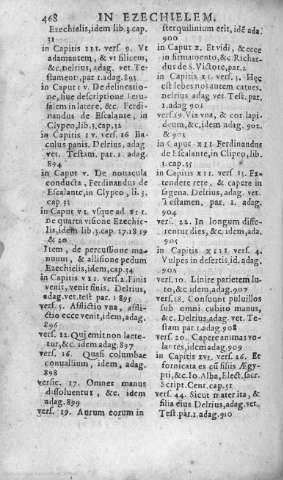 468 IN EZECHIELEM.
Ezechielis, idem lib.3.cap.
31
in Capitis III. vers. 9. Vt
adamantem, & vt silicem,
&c. Delrius, adag. vet. Te-
stament. par.1.adag.893
in Caput IV. De delineatio-
ne, siue descriptione Ieru-
salem in latere, &c. Ferdi-
nandus de Escalante, in
Clypeo, lib.3.cap.32
in Capitis IV. vers. 16 Ba-
culus panis. Delrius, adag.
vet. Testam. par. 1. adag.
894
in Caput V. De nouacula
conducta, Ferdinandus de
Escalante, in Clypeo, li. 3.
cap.
in Caput VI. vsque ad XII.
De quarta visione Ezechie-
lis, idem lib.3.cap.17.18.19
& 20
Item, de percussione ma-
nuum, & allisione pedum
Ezechielis, idem, cap.34
in Capitis VII. vers.2. Finis
venit, venit finis. Delrius,
adag.vet.test par.1 895
vers.5. Afflictio vna, affli-
ctio ecce venit, idem, adag.
896
vers.12. Qui emit non læte-
tur, &c. idem adag.897
vers. 16. Quasi columbae
conuallium, idem, adag.
898
versic. 17. Omnes manus
dissoluentur, &c. idem
adag.899
vers. 19. Aurum eorum in
sterquilinium erit, idē adag.
900
in Caput 2. Et vidi, & ecce
in firmamento, &c. Richar-
dus de S. Victore, par.1.
in Capitis XI. vers. 3. Hęc
est lebes nos autem carnes.
Delrius adag vet Test par.
1.adag 901
vers.19. Via vna, & cor lapi-
deum, &c, idem adag. 902.
& 903
in Caput XII Ferdinandus
de Escalante, in Clipeo, lib.
3.cap.35
in Capitis XII. vers. 13. Ex-
tendere rete, & capere in
sagena. Delrius, adag. vet.
Testamen. par. 1. adag.
904
vers. 22. In longum diffe-
rentur dies, &c. idem, adag.
905
in Capitis XIII. vers. 4.
Vulpes in desertis, id. adag.
906
vers. 10. Linire parietem lu-
to, &c. idem, adag. 907
vers.18. Consuunt puluillos
sub omni cubito manus,
&c. Delrius, adag. vet. Te-
stam par 1.adag.908
vers. 20. Capere animas vo-
lantes, idem adag. 909
in Capitis XVI. vers. 26. Et
fornicata es cū filiis Ægyp-
ti, &c. Io. Alba, Elect. sacr.
Script. Cent. cap.51
vers. 44. Sicut mater ita, &
filia eius Delrius, adag. vet.
Test. par.1.adag.910